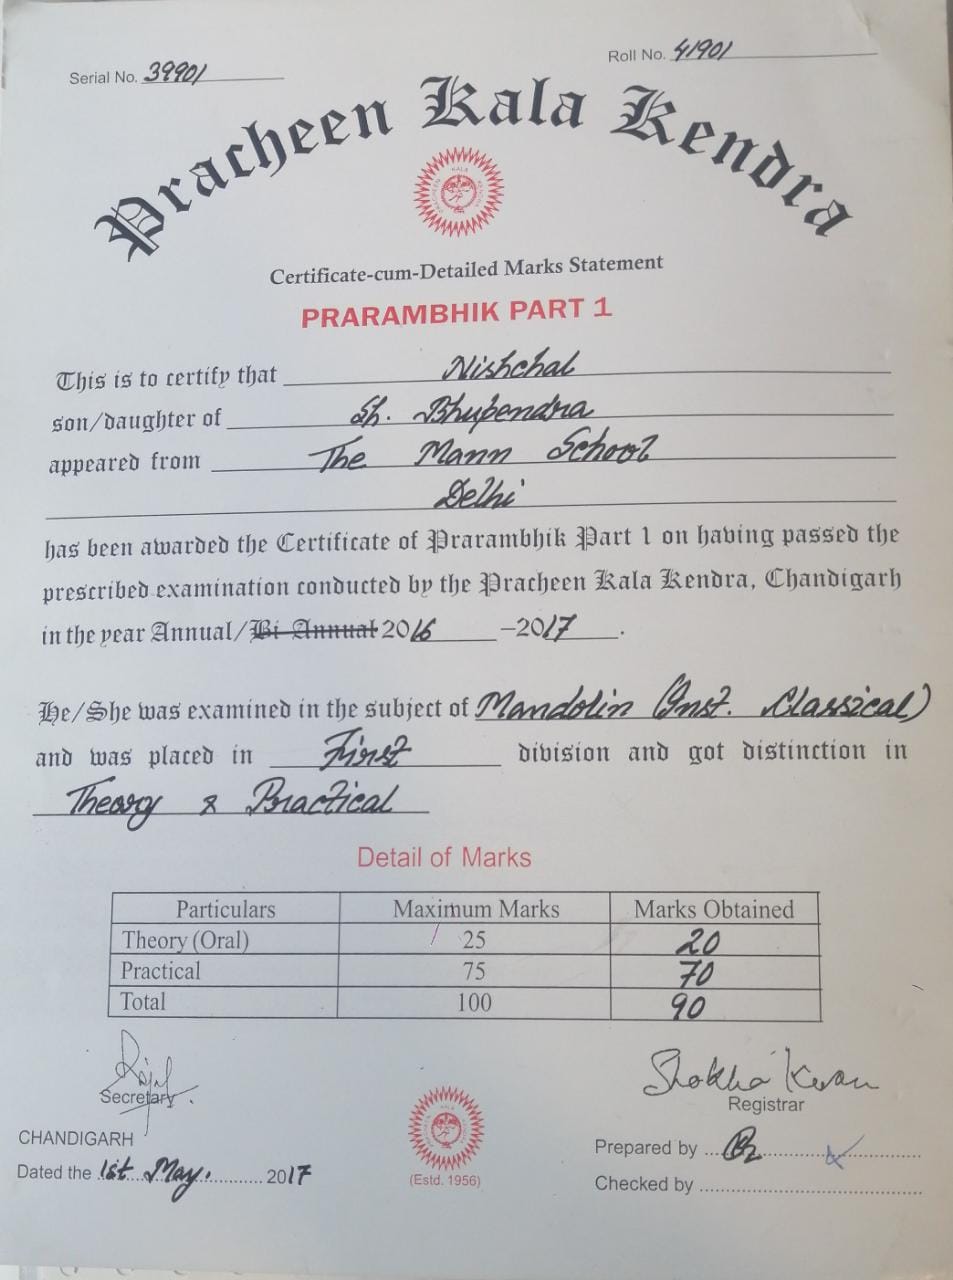 Serial No. 39901
Roll No. 41901
Pracheen Kala Kendra
Certificate-cum-Detailed Marks Statement
PRARAMBHIK PART 1
This is to certify that Nishchal
son/daughter of Sh. Bhupendra
appeared from The Mann School
Delhi
has been awarded the Certificate of Prarambhik Part 1 on having passed the
prescribed examination conducted by the Pracheen Kala Kendra, Chandigarh
in the year Annual/Bi-Annual 2016 –2017.
He/She was examined in the subject of Mandolin (Inst. Classical)
and was placed in First division and got distinction in
Theory & Practical
Detail of Marks
Particulars Maximum Marks Marks Obtained
Theory (Oral) 25 20
Practical 75 70
Total 100 90
Secretary
Registrar
CHANDIGARH
Prepared by
Dated the 1st May. 2017
(Estd. 1956)
Checked by